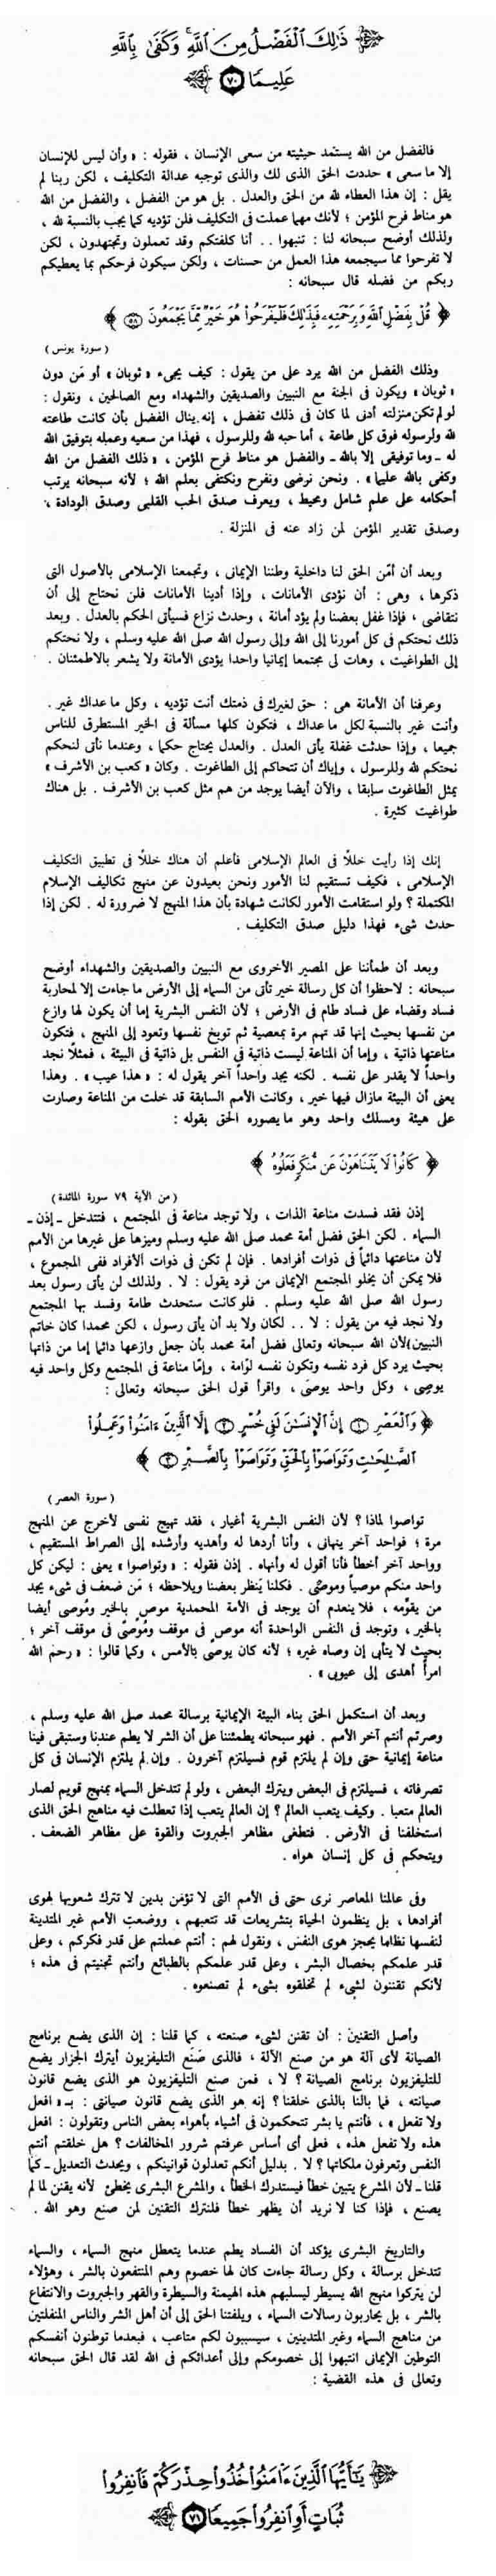 ذَٰلِكَ ٱلْفَضْلُ مِنَ ٱللَّهِ ۚ وَكَفَىٰ بِٱللَّهِ
عَلِيمًا ٧٠
فالفضل من الله يستمد حيثيته من سعى الإنسان ، فقوله : « وأن ليس للإنسان
إلا ما سعى » حددت الحق الذى لك والذى توجبه عدالة التكليف ، لكن ربنا لم
يقل : إن هذا العطاء لله من الحق والعدل . بل هو من الفضل ، والفضل من الله
هو مناط فرح المؤمن ؛ لأنك مهما عملت فى التكليف فلن تؤديه كما يجب بالنسبة لله ،
ولذلك أوضح سبحانه لنا : تنبهوا .. أنا كلفتكم وقد تعملون وتجتهدون ، لكن
لا تفرحوا مما سيجمعه هذا العمل من حسنات ، ولكن سيكون فرحكم بما يعطيكم
ربكم من فضله قال سبحانه :
﴿ قُلْ بِفَضْلِ ٱللَّهِ وَبِرَحْمَتِهِۦ فَبِذَٰلِكَ فَلْيَفْرَحُوا۟ هُوَ خَيْرٌ مِّمَّا يَجْمَعُونَ ٥٨ ﴾
( سورة يونس )
وذلك الفضل من الله يرد على من يقول : كيف يجىء « ثوبان » أو مَن دون
« ثوبان » ويكون فى الجنة مع النبيين والصديقين والشهداء ومع الصالحين ، ونقول :
لو لم تكن منزلته أدنى لما كان فى ذلك تفضل ، إنه ينال الفضل بأن كانت طاعته
لله ولرسوله فوق كل طاعة ، أما حبه لله وللرسول ، فهذا من سعيه وعمله بتوفيق الله
له ـ وما توفيقى إلا بالله ـ والفضل هو مناط فرح المؤمن ، « ذلك الفضل من الله
وكفى بالله عليما » . ونحن نرضى ونفرح ونكتفى بعلم الله ؛ لأنه سبحانه يرتب
أحكامه على علم شامل ومحيط ، ويعرف صدق الحب القلبى وصدق الودادة ،
وصدق تقدير المؤمن لمن زاد عنه فى المنزلة .
وبعد أن أمّن الحق لنا داخلية وطننا الإيمانى ، وتجمعنا الإسلامى بالأصول التى
ذكرها ، وهى : أن نؤدى الأمانات ، وإذا أدينا الأمانات فلن نحتاج إلى أن
نتقاضى ، فإذا غفل بعضنا ولم يؤد أمانة ، وحدث نزاع فسيأتى الحكم بالعدل . وبعد
ذلك نحتكم فى كل أمورنا إلى الله وإلى رسول الله صلى الله عليه وسلم ، ولا نحتكم
إلى الطواغيت ، وهات لى مجتمعا إيمانيا واحدا يؤدى الأمانة ولا يشعر بالاطمئنان .
وعرفنا أن الأمانة هى : حق لغيرك فى ذمتك أنت تؤديه ، وكل ما عداك غير .
وأنت غير بالنسبة لكل ما عداك ، فتكون كلها مسألة فى الخير المستطرق للناس
جميعا ، وإذا حدثت غفلة يأتى العدل . والعدل يحتاج حكما ، وعندما نأتى لنحكم
نحتكم لله وللرسول ، وإياك أن تتحاكم إلى الطاغوت . وكان « كعب بن الأشرف »
يمثل الطاغوت سابقا ، والآن أيضا يوجد من هم مثل كعب بن الأشرف . بل هناك
طواغيت كثيرة .
إنك إذا رأيت خللًا فى العالم الإسلامى فأعلم أن هناك خللًا فى تطبيق التكليف
الإسلامى ، فكيف تستقيم لنا الأمور ونحن بعيدون عن منهج تكاليف الإسلام
المكتملة ؟ ولو استقامت الأمور لكانت شهادة بأن هذا المنهج لا ضرورة له . لكن إذا
حدث شىء فهذا دليل صدق التكليف .
وبعد أن طمأننا على المصير الأخروى مع النبيين والصديقين والشهداء أوضح
سبحانه : لاحظوا أن كل رسالة خير تأتى من السماء إلى الأرض ما جاءت إلا لمحاربة
فساد وقضاء على فساد طام فى الأرض ؛ لأن النفس البشرية إما أن يكون لها وازع
من نفسها بحيث إنها قد تهم مرة بمعصية ثم توبخ نفسها وتعود إلى المنهج ، فتكون
مناعتها ذاتية ، وإما أن المناعة ليست ذاتية فى النفس بل ذاتية فى البيئة ، فمثلًا نجد
واحداً لا يقدر على نفسه . لكنه يجد واحداً آخر يقول له : « هذا عيب » . وهذا
يعنى أن البيئة مازال فيها خير ، وكانت الأمم السابقة قد خلت من المناعة وصارت
على هيئة ومسلك واحد وهو ما يصوره الحق بقوله :
﴿ كَانُوا۟ لَا يَتَنَاهَوْنَ عَن مُّنكَرٍ فَعَلُوهُ ﴾
( من الآية ٧٩ سورة المائدة )
إذن فقد فسدت مناعة الذات ، ولا توجد مناعة فى المجتمع ، فتتدخل ـ إذن ـ
السماء . لكن الحق فضل أمة محمد صلى الله عليه وسلم وميزها على غيرها من الأمم
لأن مناعتها دائماً فى ذوات أفرادها . فإن لم تكن فى ذوات الأفراد ففى المجموع ،
فلا يمكن أن يخلو المجتمع الإيمانى من فرد يقول : لا . ولذلك لن يأتى رسول بعد
رسول الله صلى الله عليه وسلم . فلو كانت ستحدث طامة وفسد بها المجتمع
ولا نجد فيه من يقول : لا .. لكان ولا بد أن يأتى رسول ، لكن محمدا كان خاتم
النبيين)لأن الله سبحانه وتعالى فضل أمة محمد بأن جعل وازعها دائما إما من ذاتها
بحيث يرد كل فرد نفسه وتكون نفسه لوّامة ، وإمّا مناعة فى المجتمع وكل واحد فيه
يوصِى ، وكل واحد يوصَى ، واقرأ قول الحق سبحانه وتعالى :
﴿ وَٱلْعَصْرِ ١ إِنَّ ٱلْإِنسَٰنَ لَفِى خُسْرٍ ٢ إِلَّا ٱلَّذِينَ ءَامَنُوا۟ وَعَمِلُوا۟
ٱلصَّٰلِحَٰتِ وَتَوَاصَوْا۟ بِٱلْحَقِّ وَتَوَاصَوْا۟ بِٱلصَّبْرِ ٣ ﴾
( سورة العصر )
تواصوا لماذا ؟ لأن النفس البشرية أغيار ، فقد تهيج نفسى لأخرج عن المنهج
مرة ؛ فواحد آخر ينهانى ، وأنا أردها له وأهديه وأرشده إلى الصراط المستقيم ،
وواحد آخر أخطأ فأنا أقول له وأنهاه . إذن فقوله : « وتواصوا » يعنى : ليكن كل
واحد منكم موصياً وموصًى . فكلنا يَنظر بعضنا ويلاحظه ؛ مَن ضعف فى شىء يجد
من يقوِّمه ، فلا ينعدم أن يوجد فى الأمة المحمدية موصٍ بالخير ومُوصى أيضا
بالخير ، وتوجد فى النفس الواحدة أنه موصٍ فى موقف ومُوصًى فى موقف آخر ؛
بحيث لا يتأبى إن وصاه غيره ؛ لأنه كان يوصى بالأمس ، وكما قالوا : « رحم الله
امرأً أهدى إلى عيوبى » .
وبعد أن استكمل الحق بناء البيئة الإيمانية برسالة محمد صلى الله عليه وسلم ،
وصرتم أنتم آخر الأمم . فهو سبحانه يطمئننا على أن الشر لا يطم عندنا وستبقى فينا
مناعة إيمانية حتى وإن لم يلتزم قوم فسيلتزم آخرون . وإن لم يلتزم الإنسان فى كل
تصرفاته ، فسيلتزم فى البعض ويترك البعض ، ولو لم تتدخل السماء بمنهج قويم لصار
العالم متعبا . وكيف يتعب العالم ؟ إن العالم يتعب إذا تعطلت فيه مناهج الحق الذى
استخلفنا فى الأرض . فتطغى مظاهر الجبروت والقوة على مظاهر الضعف .
ويتحكم فى كل إنسان هواه .
وفى عالمنا المعاصر نرى حتى فى الأمم التى لا تؤمن بدين لا تترك شعوبها لهوى
أفرادها ، بل ينظمون الحياة بتشريعات قد تتعبهم ، ووضعت الأمم غير المتدينة
لنفسها نظاما يحجز هوى النفس ، ونقول لهم : أنتم عملتم على قدر فكركم ، وعلى
قدر علمكم بخصال البشر ، وعلى قدر علمكم بالطبائع وأنتم تجنيتم فى هذه ؛
لأنكم تقننون لشىء لم تخلقوه بشىء لم تصنعوه .
وأصل التقنين : أن تقنن لشىء صنعته ، كما قلنا : إن الذى يضع برنامج
الصيانة لأى آلة هو من صنع الآلة ، فالذى صَنَع التليفزيون أيترك الجزار يضع
للتليفزيون برنامج الصيانة ؟ لا ، فمن صنع التليفزيون هو الذى يضع قانون
صيانته ، فما بالنا بالذى خلقنا ؟ إنه هو الذى يضع قانون صيانتى : بـ « افعل
ولا تفعل » ، فأنتم يا بشر تتحكمون فى أشياء بأهواء بعض الناس وتقولون : افعل
هذه ولا تفعل هذه ، فعلى أى أساس عرفتم شرور المخالفات ؟ هل خلقتم أنتم
النفس وتعرفون ملكاتها ؟ لا . بدليل أنكم تعدلون قوانينكم ، ويحدث التعديل ـ كما
قلنا ـ لأن المشرع يتبين خطأ فيستدرك الخطأ ، والمشرع البشرى يخطئ لأنه يقنن لما لم
يصنع ، فإذا كنا لا نريد أن يظهر خطأ فلنترك التقنين لمن صنع وهو الله .
والتاريخ البشرى يؤكد أن الفساد يطم عندما يتعطل منهج السماء ، والسماء
تتدخل برسالة ، وكل رسالة جاءت كان لها خصوم وهم المنتفعون بالشر ، وهؤلاء
لن يتركوا منهج الله يسيطر ليسلبهم هذه الهيمنة والسيطرة والقهر والجبروت والانتفاع
بالشر ، بل يحاربون رسالات السماء ، ويلفتنا الحق إلى أن أهل الشر والناس المنفلتين
من مناهج السماء وغير المتدينين ، سيسببون لكم متاعب ، فبعدما توطنون أنفسكم
التوطين الإيمانى انتبهوا إلى خصومكم وإلى أعدائكم فى الله لقد قال الحق سبحانه
وتعالى فى هذه القضية :
يَٰٓأَيُّهَا ٱلَّذِينَ ءَامَنُوا۟ خُذُوا۟ حِذْرَكُمْ فَٱنفِرُوا۟
ثُبَاتٍ أَوِ ٱنفِرُوا۟ جَمِيعًا ٧١